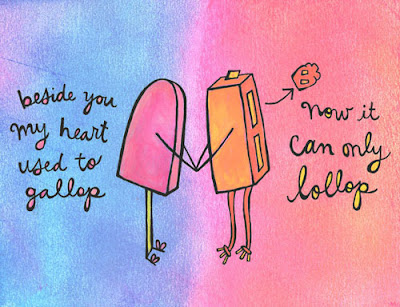 beside you
my heart
used to
gallop
now it
can only
lollop